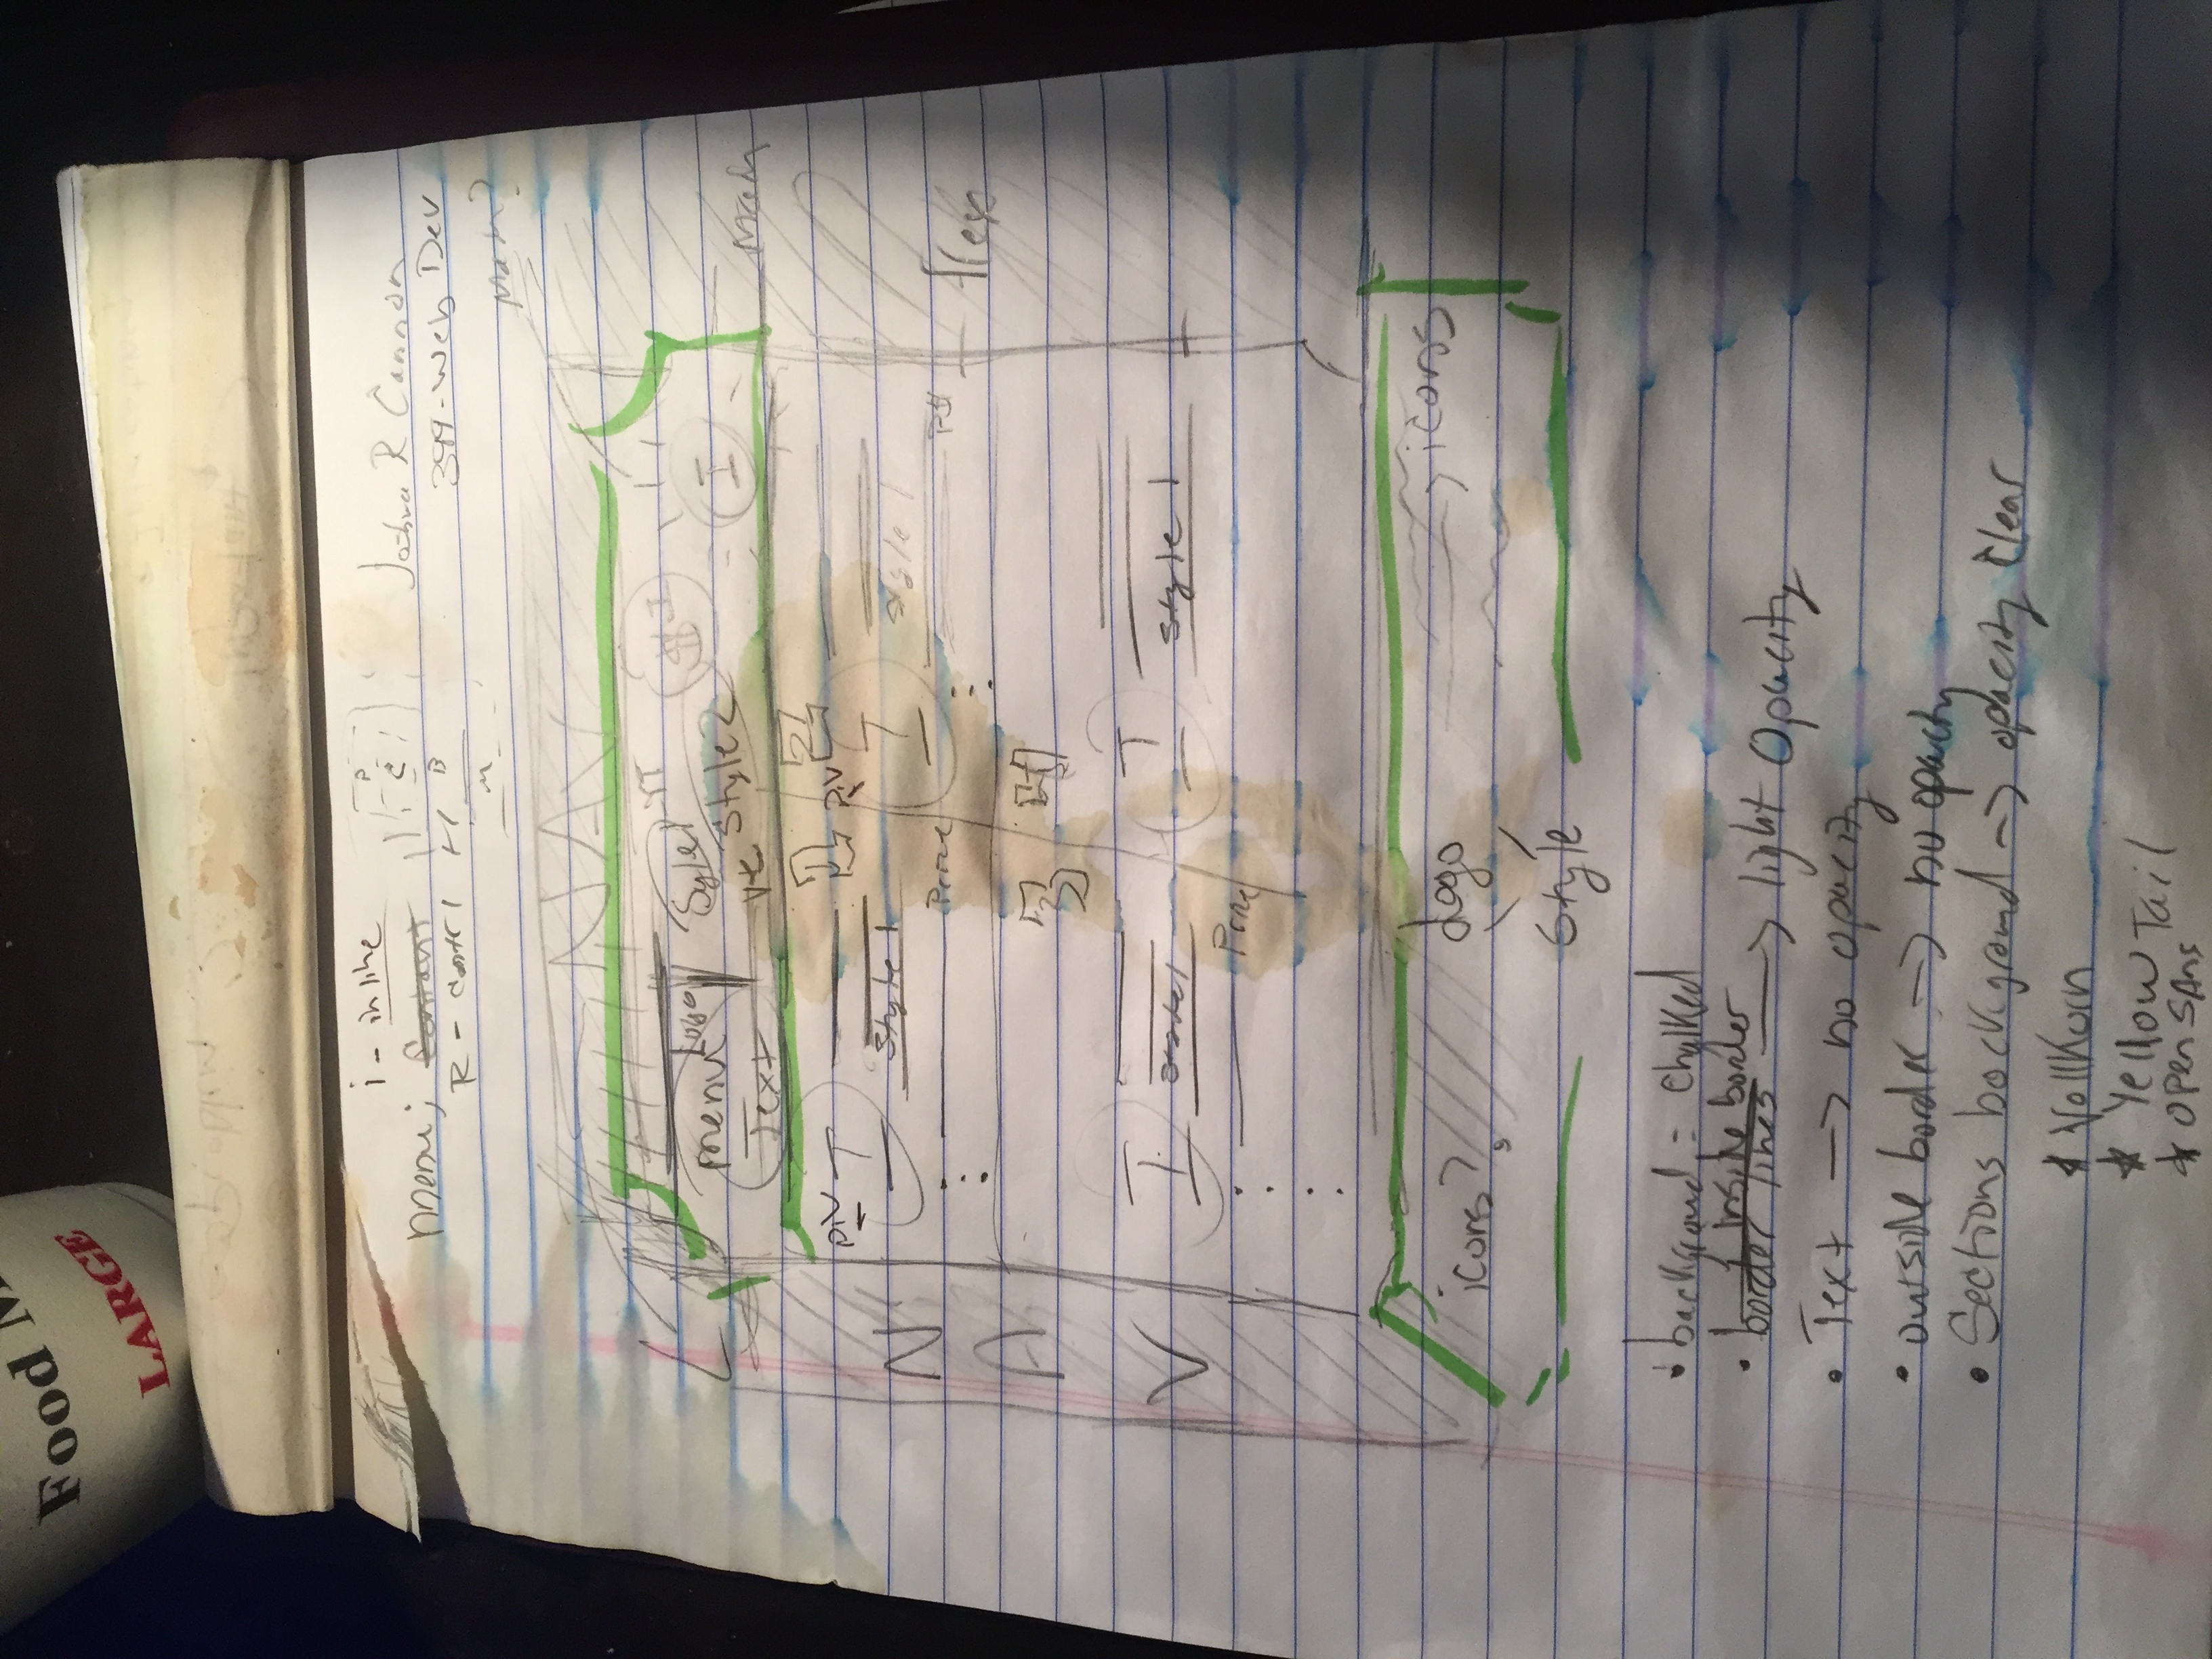 Food M
LARGE
i - inline
menu; Contant
R - contrl H
P
C
B
M
Joshua R Cannon
399-Web Dev
Math?
NAV
L
menu Logo
Text
Style1
Style2
I
I
Math
1 2
DIV T DIV T
Style 1 Style 1
Price P$
N
A
V
flex
3 4
I T
Style 1 Style 1
Price
icons? Logo icons
Style
• background = Chalked
inside border
• border lines → light Opacity
• Text → no opacity
• outside border → no opacity
• Sections background → opacity clear
* Vollkorn
* Yellow Tail
* Open Sans